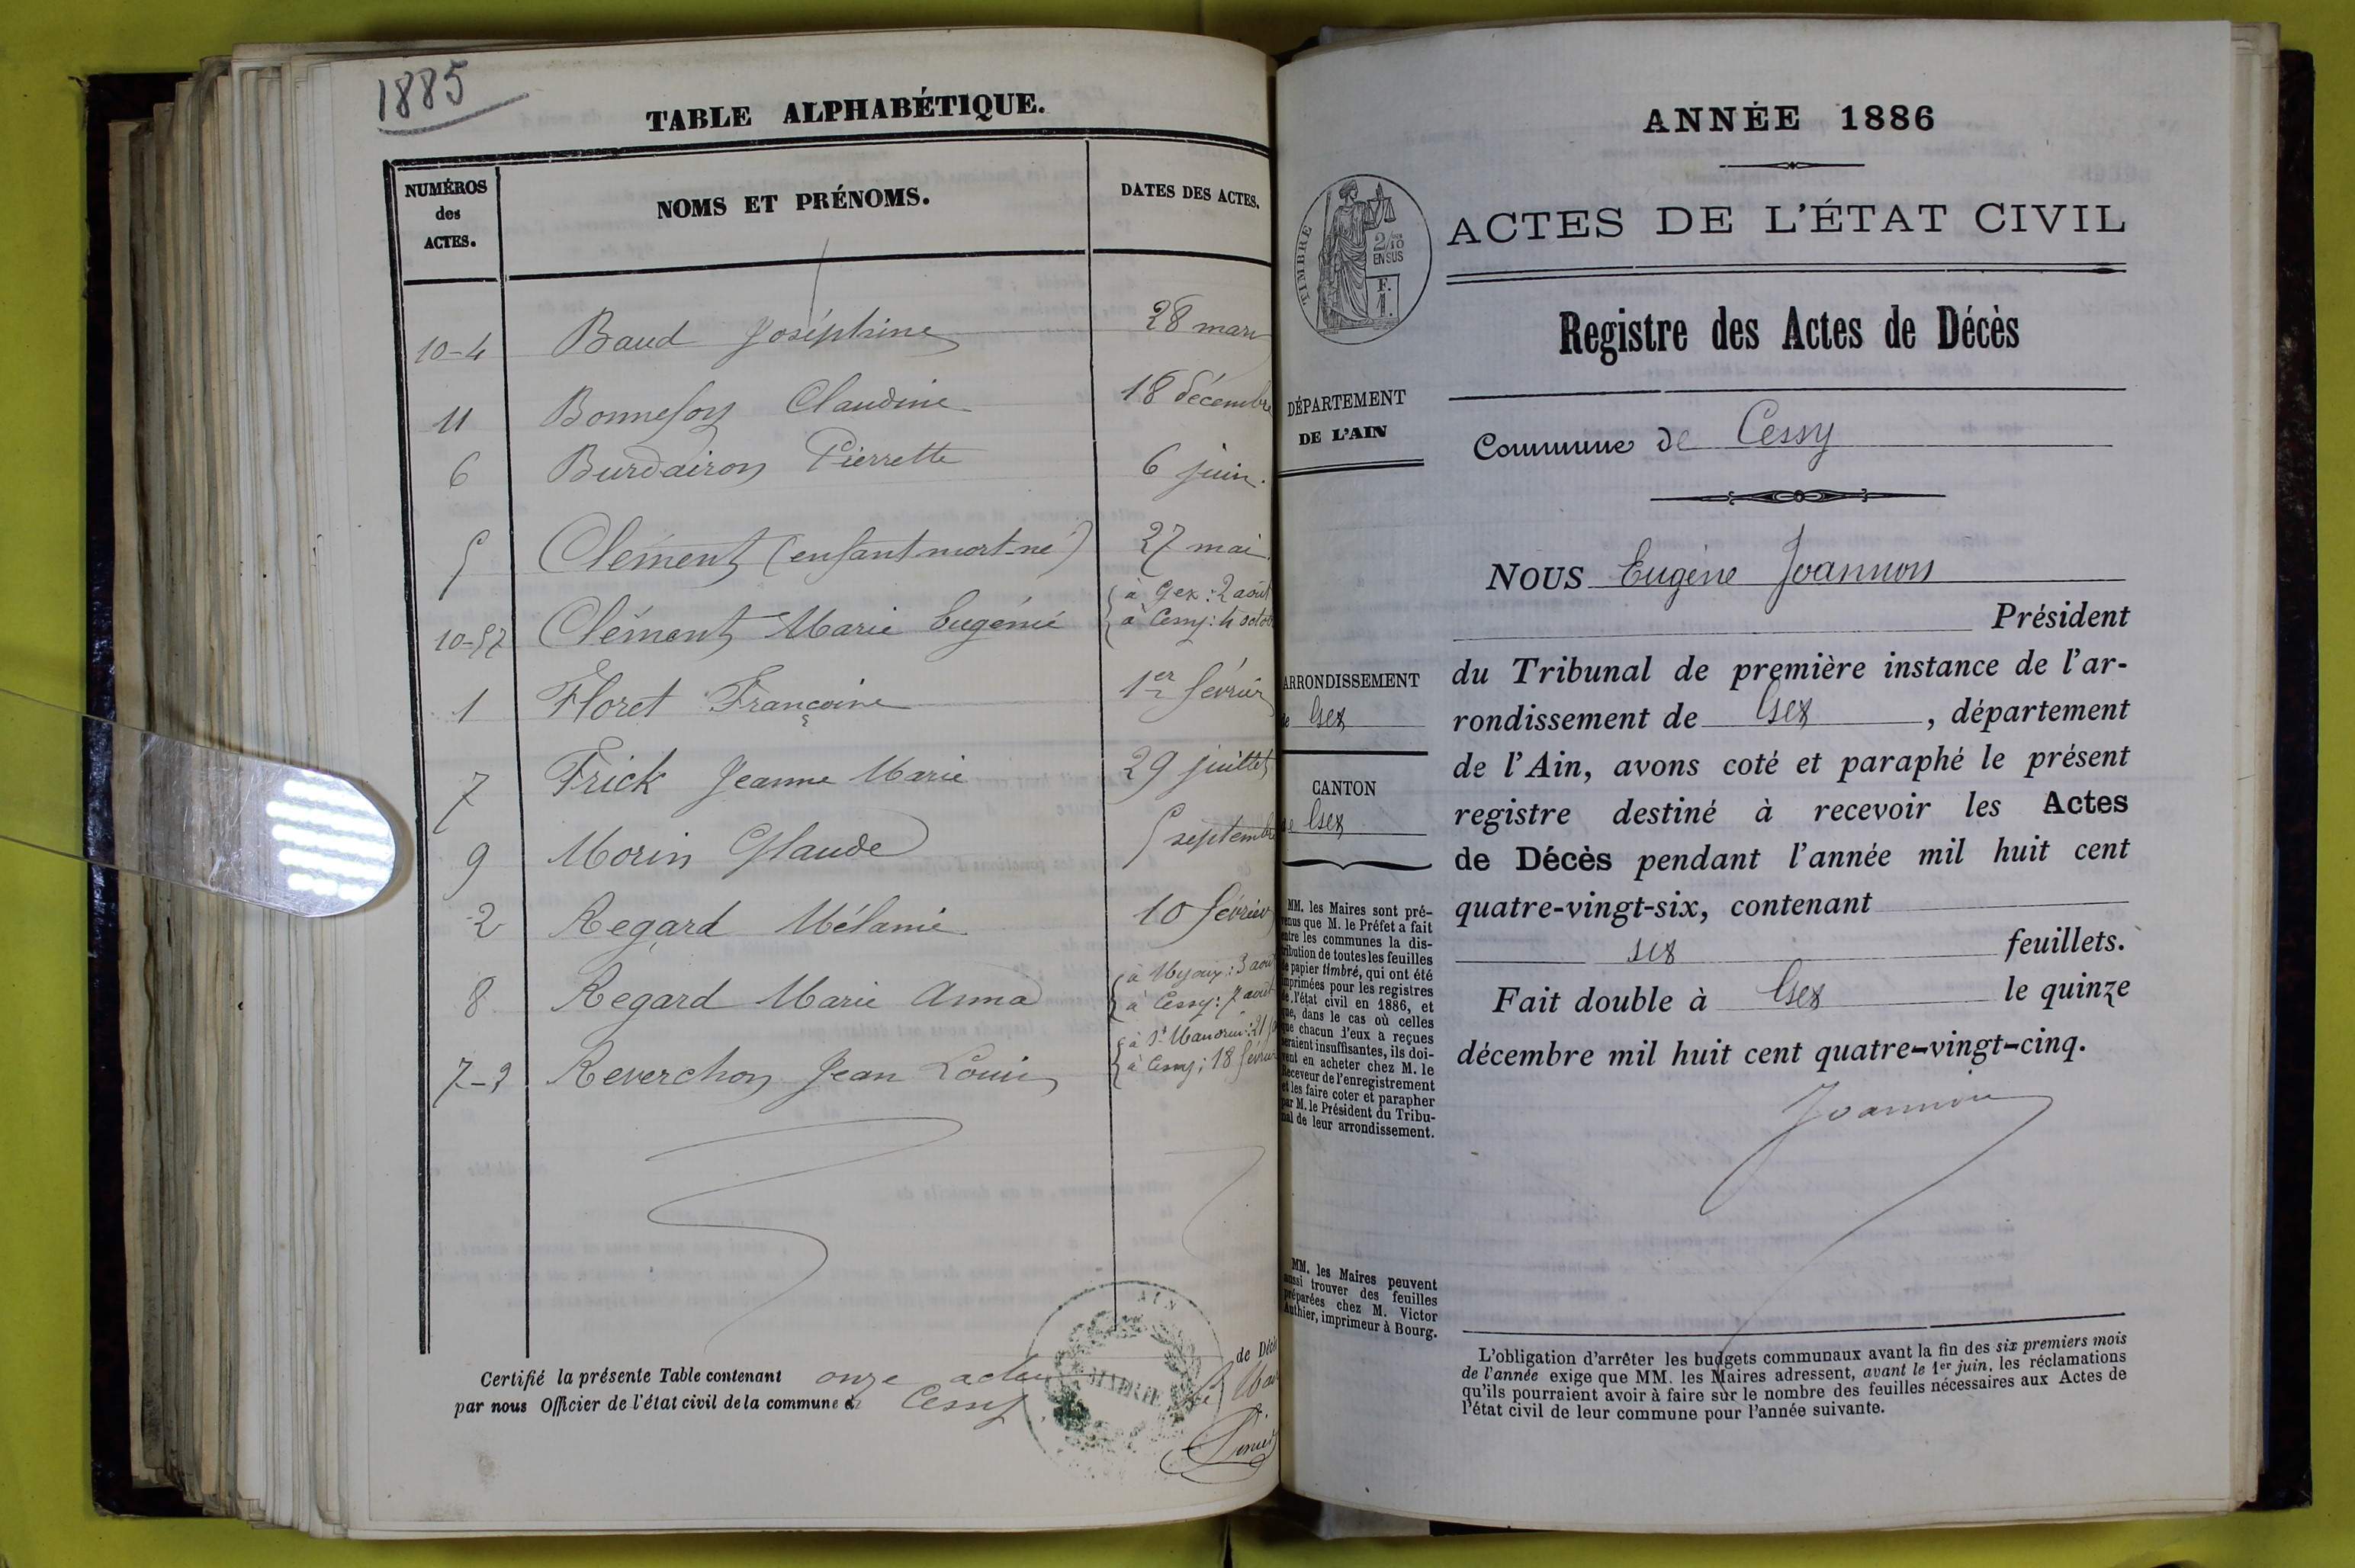 1885
TABLE ALPHABÉTIQUE.
NUMÉROS des ACTES. NOMS ET PRÉNOMS. DATES DES ACTES.
10-4 Baud Joséphine 28 mars
11 Bonnefoy Claudine 18 décembre
6 Burdairon Pierrette 6 juin.
5 Clément (enfant mort-né) 27 mai.
à Gex : 2 août
10-57 Clément Marie Eugénie à Cessy : 4 octob
1 Floret Françoise 1er février
7 Frick Jeanne Marie 29 juillet
9 Morin Glaude 5 septembre
2 Regard Mélanie 10 février
à Mijoux : 3 août
8 Regard Marie Anna à Cessy : 7 août
à St Mandrier : 21
7-3 Reverchon Jean Louis à Cessy : 18 février
Certifié la présente Table contenant onze actes de Décès
par nous Officier de l'état civil de la commune de Cessy
MAIRIE
AIN
ANNÉE 1886
TIMBRE
2/10 EN SUS
F. 1.
ACTES DE L'ÉTAT CIVIL
Registre des Actes de Décès
DÉPARTEMENT
DE L'AIN
Commune de Cessy
NOUS Eugène Joannon
Président
du Tribunal de première instance de l'ar-
rondissement de Gex, département
de l'Ain, avons coté et paraphé le présent
registre destiné à recevoir les Actes
de Décès pendant l'année mil huit cent
quatre-vingt-six, contenant
six feuillets.
Fait double à Gex le quinze
décembre mil huit cent quatre-vingt-cinq.
Joannon
ARRONDISSEMENT
de Gex
CANTON
de Gex
MM. les Maires sont pré-
venus que M. le Préfet a fait
entre les communes la dis-
tribution de toutes les feuilles
de papier timbré, qui ont été
imprimées pour les registres
de l'état civil en 1886, et
que, dans le cas où celles
que chacun d'eux a reçues
seraient insuffisantes, ils doi-
vent en acheter chez M. le
Receveur de l'enregistrement
et les faire coter et parapher
par M. le Président du Tribu-
nal de leur arrondissement.
MM. les Maires peuvent
aussi trouver des feuilles
préparées chez M. Victor
Authier, imprimeur à Bourg.
L'obligation d'arrêter les budgets communaux avant la fin des six premiers mois
de l'année exige que MM. les Maires adressent, avant le 1er juin, les réclamations
qu'ils pourraient avoir à faire sur le nombre des feuilles nécessaires aux Actes de
l'état civil de leur commune pour l'année suivante.